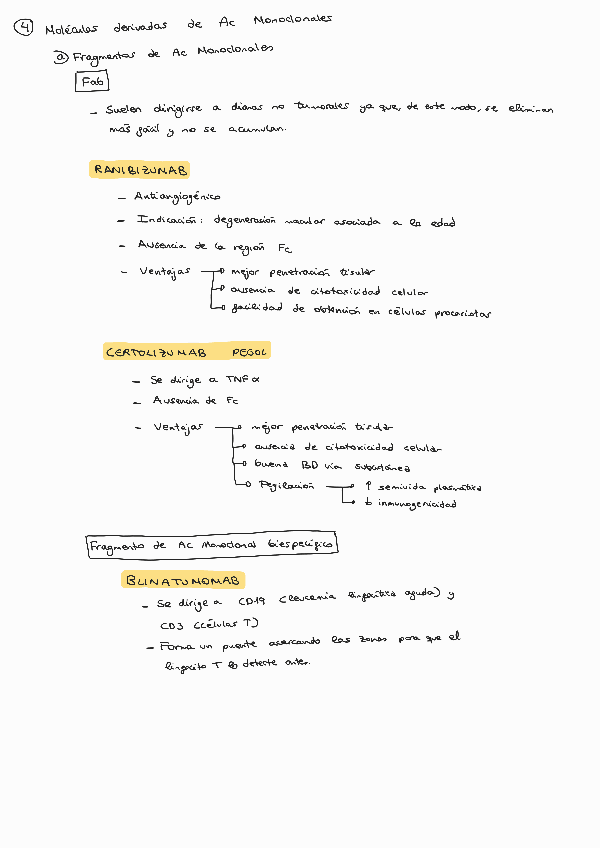 4 Moléculas derivadas de Ac Monoclonales
a) Fragmentos de Ac Monoclonales
Fab
- Suelen dirigirse a dianas no tumorales ya que, de este modo, se eliminan
más fácil y no se acumulan.
RANIBIZUMAB
- Antiangiogénico
- Indicación: degeneración macular asociada a la edad
- Ausencia de la región Fc
- Ventajas → mejor penetración tisular
→ ausencia de citotoxicidad celular
→ facilidad de obtención en células procariotas
CERTOLIZUMAB PEGOL
- Se dirige a TNFα
- Ausencia de Fc
- Ventajas → mejor penetración tisular
→ ausencia de citotoxicidad celular
→ buena BD vía subcutánea
→ Pegilación → ↑ semivida plasmática
→ ↓ inmunogenicidad
Fragmento de Ac Monoclonal biespecífico
BLINATUMOMAB
- Se dirige a CD19 (leucemia linfocítica aguda) y
CD3 (células T)
- Forma un puente acercando las zonas para que el
linfocito T lo detecte antes.